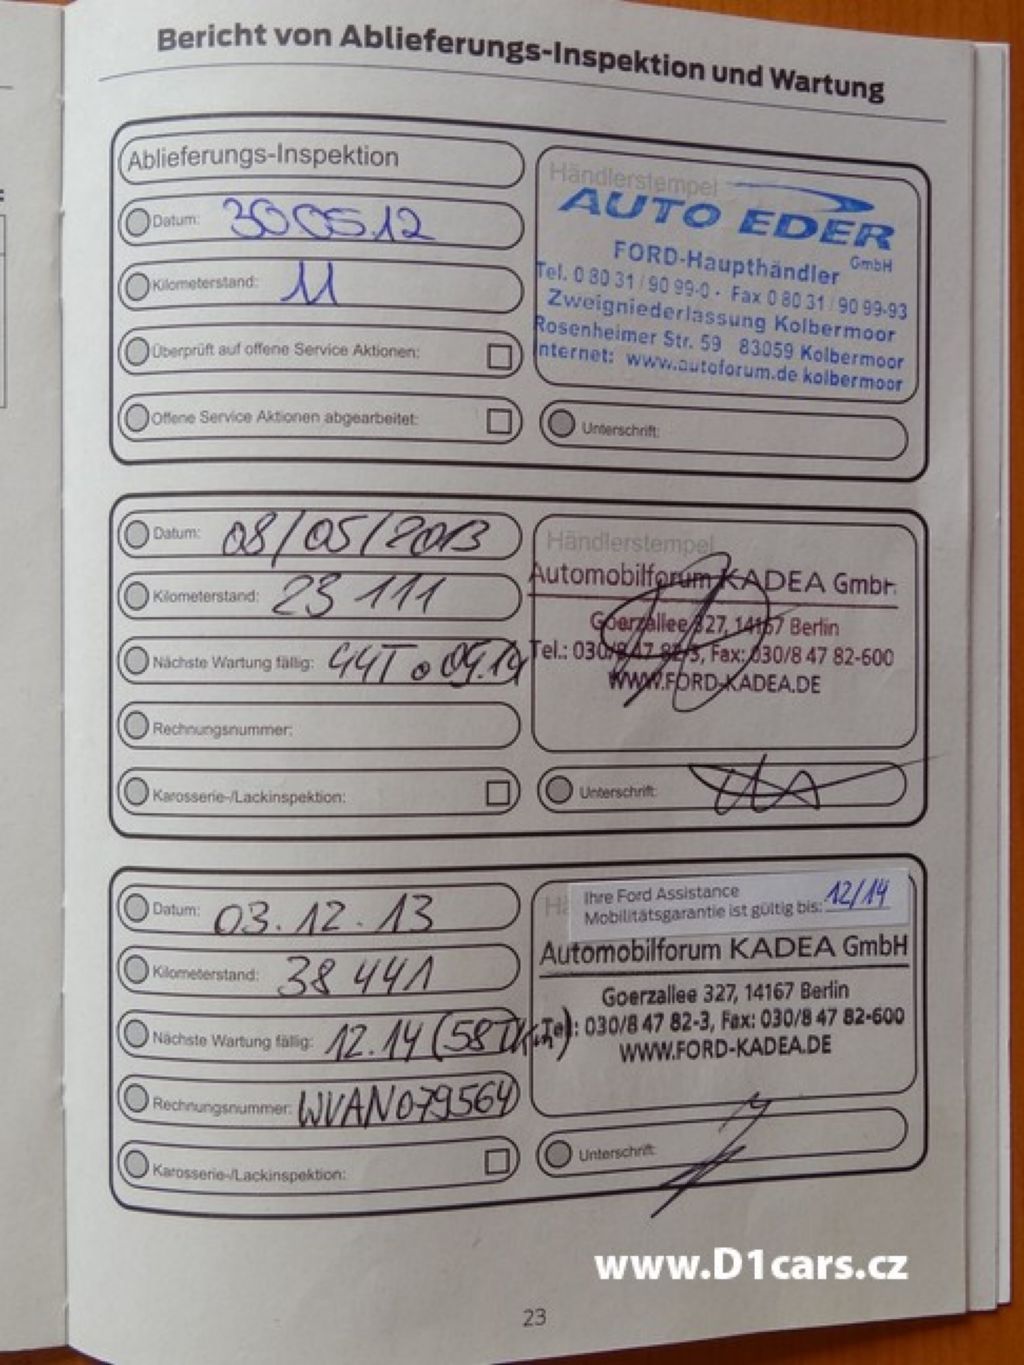 Bericht von Ablieferungs-Inspektion und Wartung
Ablieferungs-Inspektion
Datum: 300512
Kilometerstand: 11
Überprüft auf offene Service Aktionen:
Offene Service Aktionen abgearbeitet:
Händlerstempel
AUTO EDER
GmbH
FORD-Haupthändler
Tel. 0 80 31 / 90 99-0 - Fax 0 80 31 / 90 99-93
Zweigniederlassung Kolbermoor
Rosenheimer Str. 59 83059 Kolbermoor
Internet: www.autoforum.de kolbermoor
Unterschrift:
Datum: 08/05/2013
Kilometerstand: 23 111
Nächste Wartung fällig: 44T o 05.14
Rechnungsnummer:
Karosserie-/Lackinspektion:
Händlerstempel
Automobilforum KADEA GmbH
Goerzallee 327, 14167 Berlin
Tel.: 030/8 47 82-3, Fax: 030/8 47 82-600
WWW.FORD-KADEA.DE
Unterschrift:
Datum: 03.12.13
Kilometerstand: 38 441
Nächste Wartung fällig: 12.14 (58TKm)
Rechnungsnummer: WVAN079564
Karosserie-/Lackinspektion:
Ihre Ford Assistance
Mobilitätsgarantie ist gültig bis: 12/14
Automobilforum KADEA GmbH
Goerzallee 327, 14167 Berlin
Tel: 030/8 47 82-3, Fax: 030/8 47 82-600
WWW.FORD-KADEA.DE
Unterschrift:
www.D1cars.cz
23